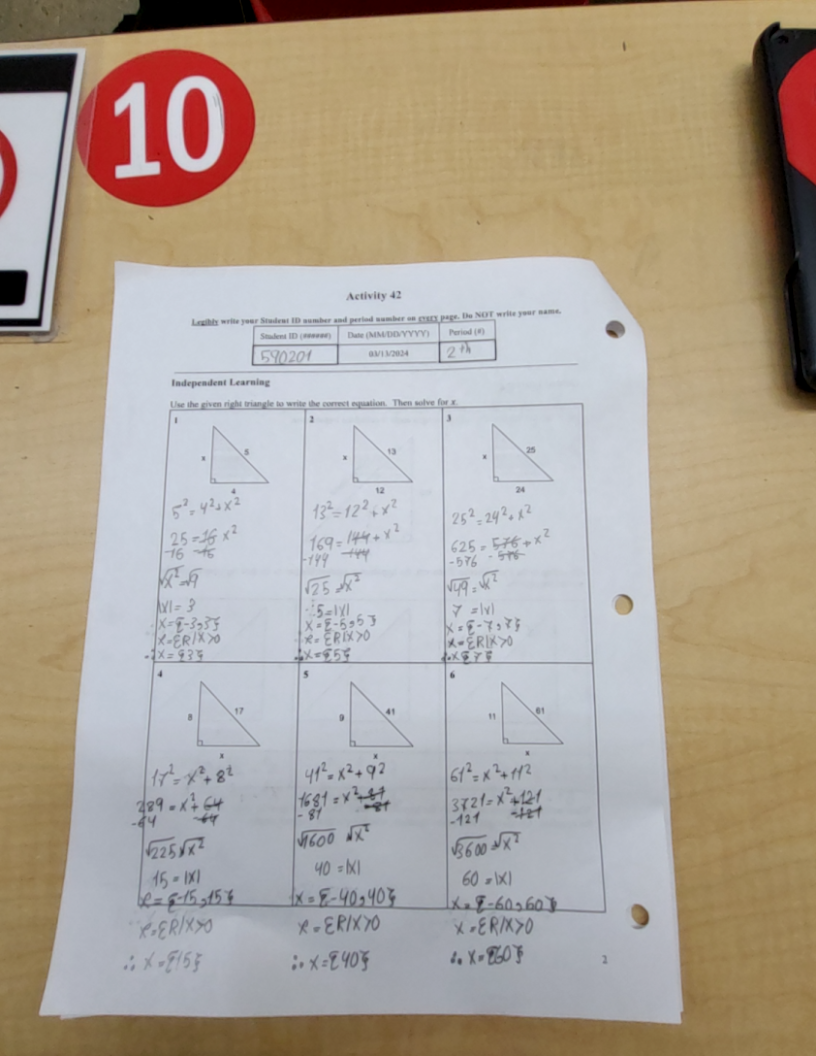 10
Activity 42
Legibly write your Student ID number and period number on every page. Do NOT write your name.
Student ID (######) Date (MM/DD/YYYY) Period (#)
590201 03/13/2024 2th
Independent Learning
Use the given right triangle to write the correct equation. Then solve for x.
1
x 5
4
5² = 4² + x²
25 = 16 x²
-16 -16
√x² = √9
|x| = 3
x = {-3,3}
x = {R|x>0
∴ x = {3}
2
x 13
12
13² = 12² + x²
169 = 144 + x²
-144 -144
√25 = √x²
5 = |x|
x = {-5,5}
x = {R|x>0
∴ x = {5}
3
x 25
24
25² = 24² + x²
625 = 576 + x²
-576 -576
√49 = √x²
7 = |x|
x = {-7,7}
x = {R|x>0
∴ x {7}
4
8 17
x
17² = x² + 8²
289 = x² + 64
-64 -64
√225 √x²
15 = |x|
x = {-15,15}
x = {R|x>0
∴ x = {15}
5
9 41
x
41² = x² + 92
1681 = x² + 81
-81 -81
√1600 √x²
40 = |x|
x = {-40,40}
x = {R|x>0
∴ x = {40}
6
11 61
x
61² = x² + 112
3721 = x² + 121
-121 -121
√3600 = √x²
60 = |x|
x = {-60,60}
x = {R|x>0
∴ x = {60}
2